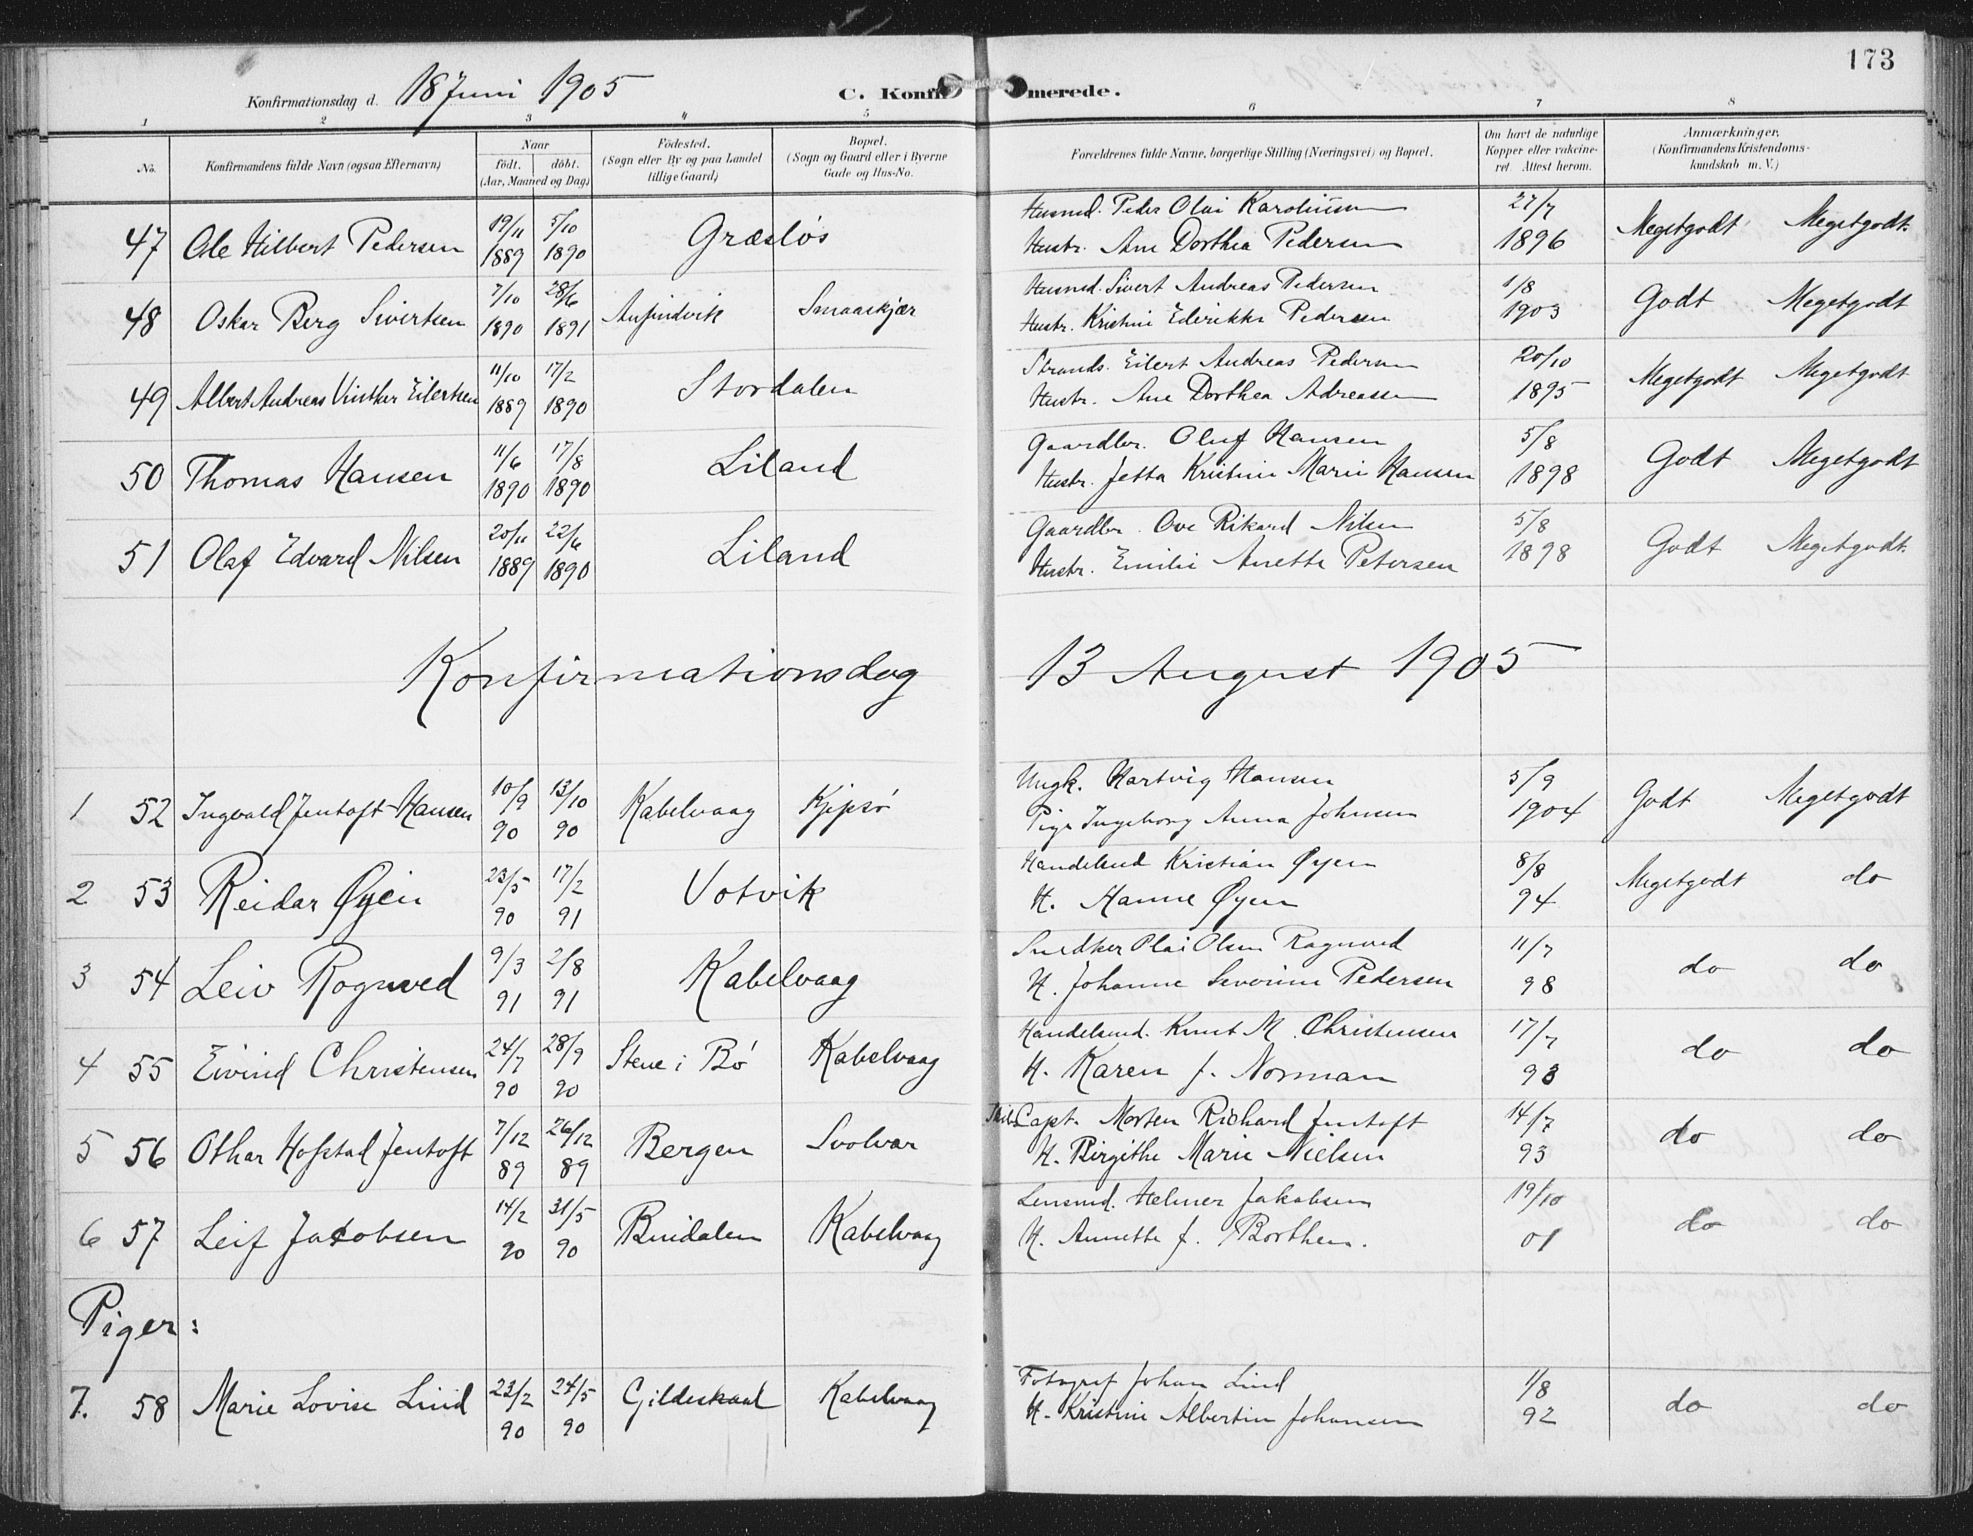 173
Konfirmationsdag d. 18 Juni 1905 C. Konfirmerede.
1 2 3 4 5 6 7 8
No. Konfirmandens fulde Navn (ogsaa Efternavn) Naar født. døbt. (Aar, Maaned og Dag) Fødested. (Sogn eller By og paa Landet tillige Gaard) Bopæl. (Sogn og Gaard eller i Byerne Gade og Hus-No. Forældrenes fulde Navne, borgerlige Stilling (Næringsvei) og Bopæl. Om havt de naturlige Kopper eller vakcineret. Attest herom. Anmærkninger. (Konfirmandens Kristendomskundskab m. V.)
47 Ole Hilbert Pedersen 19/11 1889 5/10 1890 Græsløs Husmd. Peder Olai Karoliussen 27/7 1896 Megetgodt Megetgodt.
Hustr. Ane Dorthea Pedersen
48 Oskar Berg Sivertsen 7/10 1890 28/6 1891 Anfindvik Smaaskjær Husmd. Sivert Andreas Pedersen 1/8 1903 Godt Megetgodt
Hustr. Kristine Ederikke Pedersen
49 Albert Andreas Vinther Eilertsen 11/10 1889 17/2 1890 Stordalen Strands. Eilert Andreas Pedersen 20/10 1895 Megetgodt Megetgodt
Hustr. Ane Dorthea Adreassen
50 Thomas Hansen 11/6 1890 17/8 1890 Liland Gaardbr. Oluf Hansen 5/8 1898 Godt Megetgodt
Hustr. Jetta Kristine Marie Hansen
51 Olaf Edvard Nilsen 20/11 1889 22/6 1890 Liland Gaardbr. Ove Rikard Nilsen 5/8 1898 Godt Megetgodt.
Hustr. Emilie Anette Petersen
Konfirmationsdag 13 August 1905
1 52 Ingvald Jentoft Hansen 10/9 90 13/10 90 Kabelvaag Kjipsø Ungk. Hartvig Hansen 5/9 1904 Godt Megetgodt
Pige Ingeborg Anna Johnsen
2 53 Reidar Øyen 23/5 90 17/2 91 Votvik Handelsmd Kristian Øyen 8/8 94 Megetgodt do
H. Hanne Øyen
3 54 Leiv Rognved 9/3 91 2/8 91 Kabelvaag Snedker Olai Olsen Rognved 11/7 98 do do
H. Johanne Severine Pedersen
4 55 Eivind Christensen 24/7 90 28/9 90 Stene i Bø Kabelvaag Handelsmd. Knut M. Christensen 17/7 93 do do
H. Karen f. Norman
5 56 Othar Hofstad Jentoft 7/12 89 26/12 89 Bergen Svolvær Capt. Morten Richard Jentoft 14/7 93 do do
H. Birgithe Marie Nielsen
6 57 Leif Jakobsen 14/2 90 31/5 90 Bindalen Kabelvaag Lensmd. Helmer Jakobsen 19/10 01 do do
H. Annette f. Borthen.
Piger:
7. 58 Marie Lovise Lind 23/2 90 24/5 90 Gildeskaal Kabelvaag Fotograf Johan Lind 1/8 92 do do
H. Kristine Albertine Johansen